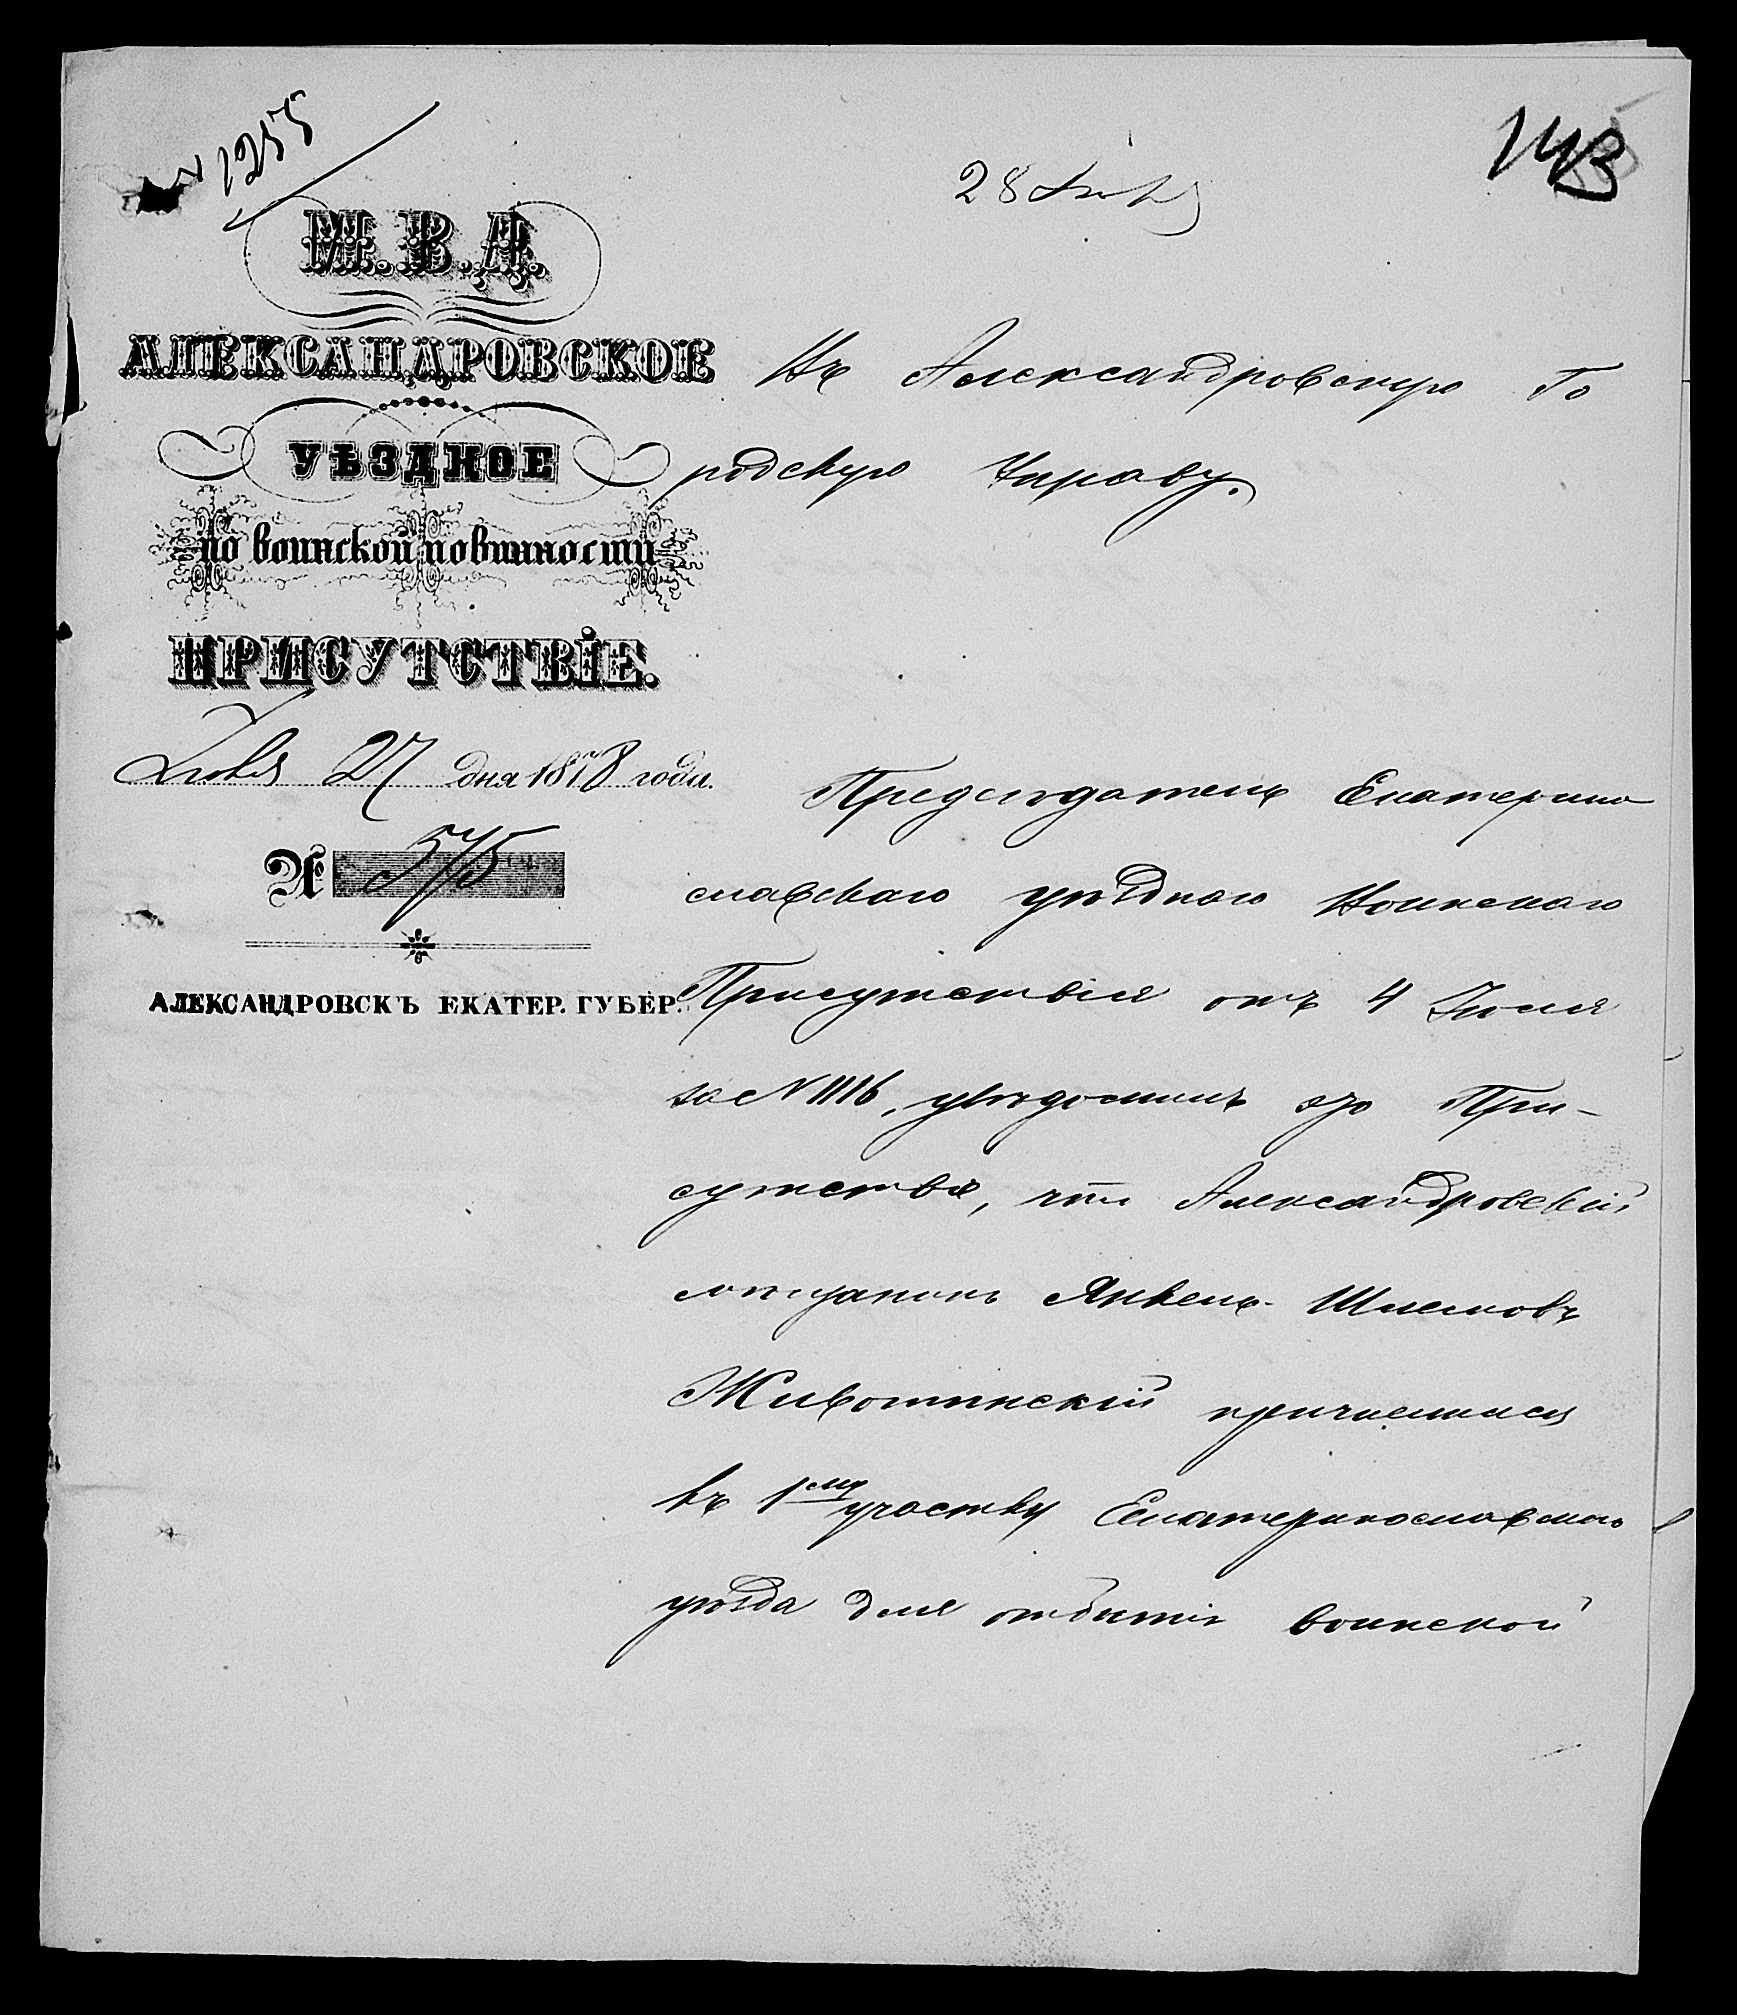 № 1255
143
28 Января
М. В. Д.
АЛЕКСАНДРОВСКОЕ
УѢЗДНОЕ
по воинской повинности
ПРИСУТСТВІЕ.
27 дня 1878 года.
№ 575
АЛЕКСАНДРОВСКЪ ЕКАТЕР. ГУБЕР.
Въ Александровскую Го
родскую Управу.
Предсѣдатель Екатерино
славскаго уѣзднаго Воинскаго
Присутствія отъ 4 Іюля
за № 1116, увѣдомилъ это При-
сутствіе, что Александровскій
мѣщанинъ Янкель Шлемовъ
Животинскій причислился
къ 1му участку Екатеринославскаго
уѣзда для отбытія воинской